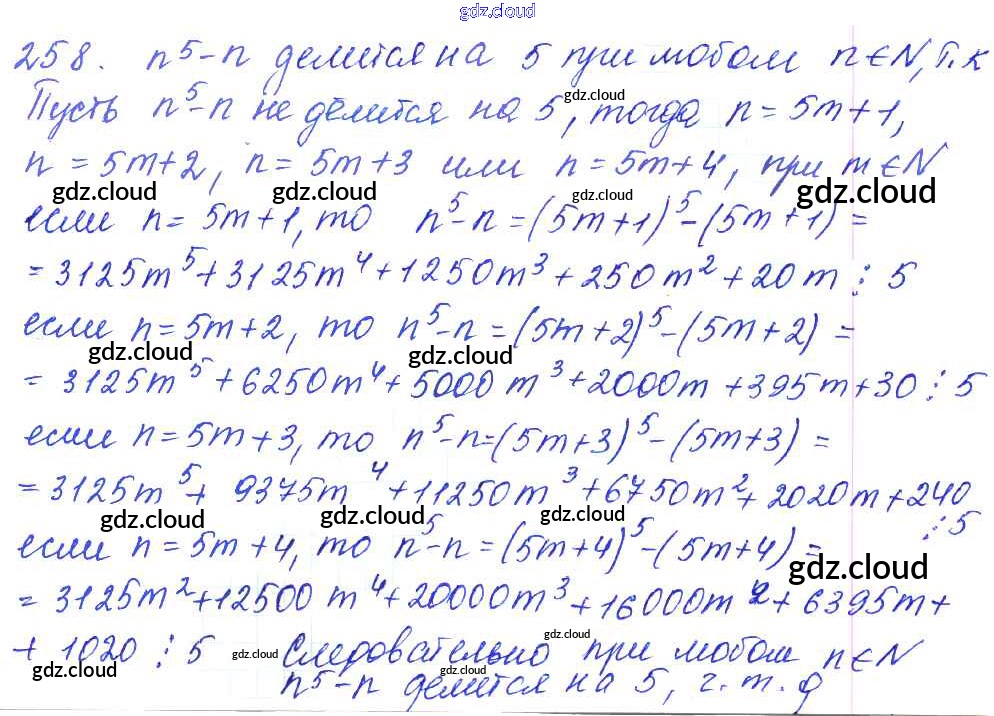 gdz.cloud
258. n⁵-n делится на 5 при любом n∈N, т.к
Пусть n⁵-n не делится на 5, тогда n = 5m+1,
gdz.cloud
n = 5m+2, n = 5m+3 или n = 5m+4, при m∈N
gdz.cloud gdz.cloud gdz.cloud gdz.cloud
если n = 5m+1, то n⁵-n = (5m+1)⁵-(5m+1) =
= 3125m⁵+3125m⁴+1250m³+250m²+20m ⋮ 5
если n = 5m+2, то n⁵-n = (5m+2)⁵-(5m+2) =
gdz.cloud gdz.cloud
= 3125m⁵+6250m⁴+5000m³+2000m+395m+30 ⋮ 5
если n = 5m+3, то n⁵-n=(5m+3)⁵-(5m+3) =
= 3125m⁵+ 9375m⁴+11250m³+6750m²+2020m+240
gdz.cloud gdz.cloud gdz.cloud
⋮ 5
если n = 5m+4, то n⁵-n = (5m+4)⁵-(5m+4) =
gdz.cloud
= 3125m²+12500m⁴+20000m³+16000m²+6395m+
+ 1020 ⋮ 5 Следовательно при любом n∈N
gdz.cloud gdz.cloud gdz.cloud gdz.cloud
n⁵-n делится на 5, ч.т.д